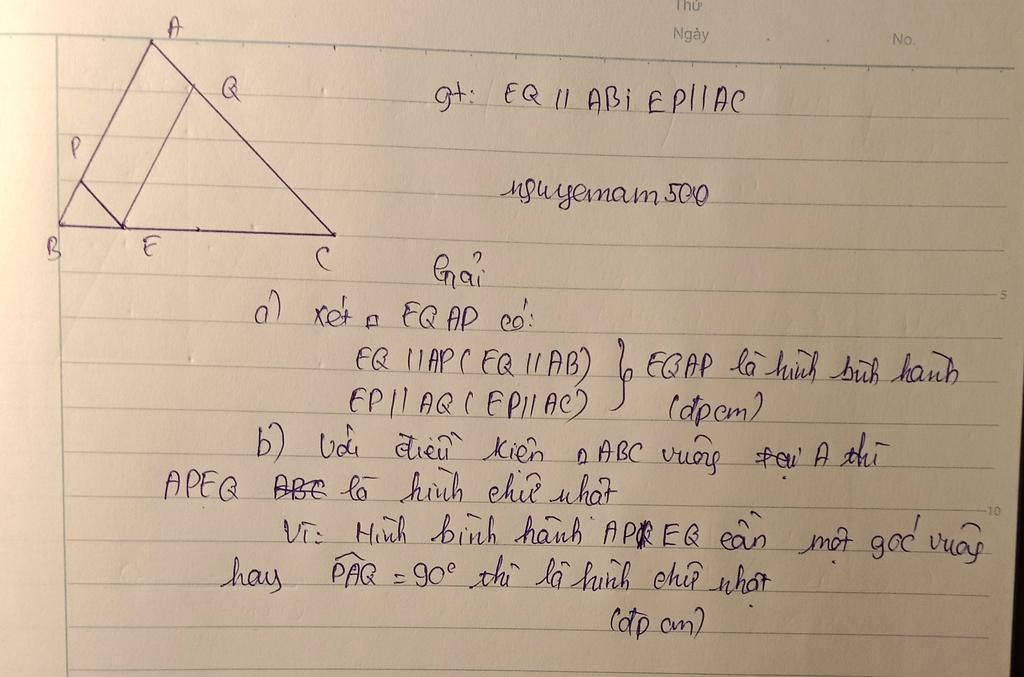 Thứ
Ngày
No.
A
Q
gt: EQ // AB; EP // AC
P
nguyemam500
B E C
Giải
5
a) xét □ EQAP có:
EQ // AP (EQ // AB) } EQAP là hình bình hành
EP // AQ (EP // AC) (đpcm)
b) Với điều kiện △ ABC vuông tại A thì
APEQ ABC là hình chữ nhật
10
Vì: Hình bình hành APEQ cần một góc vuông
hay PAQ = 90° thì là hình chữ nhật
(đpcm)